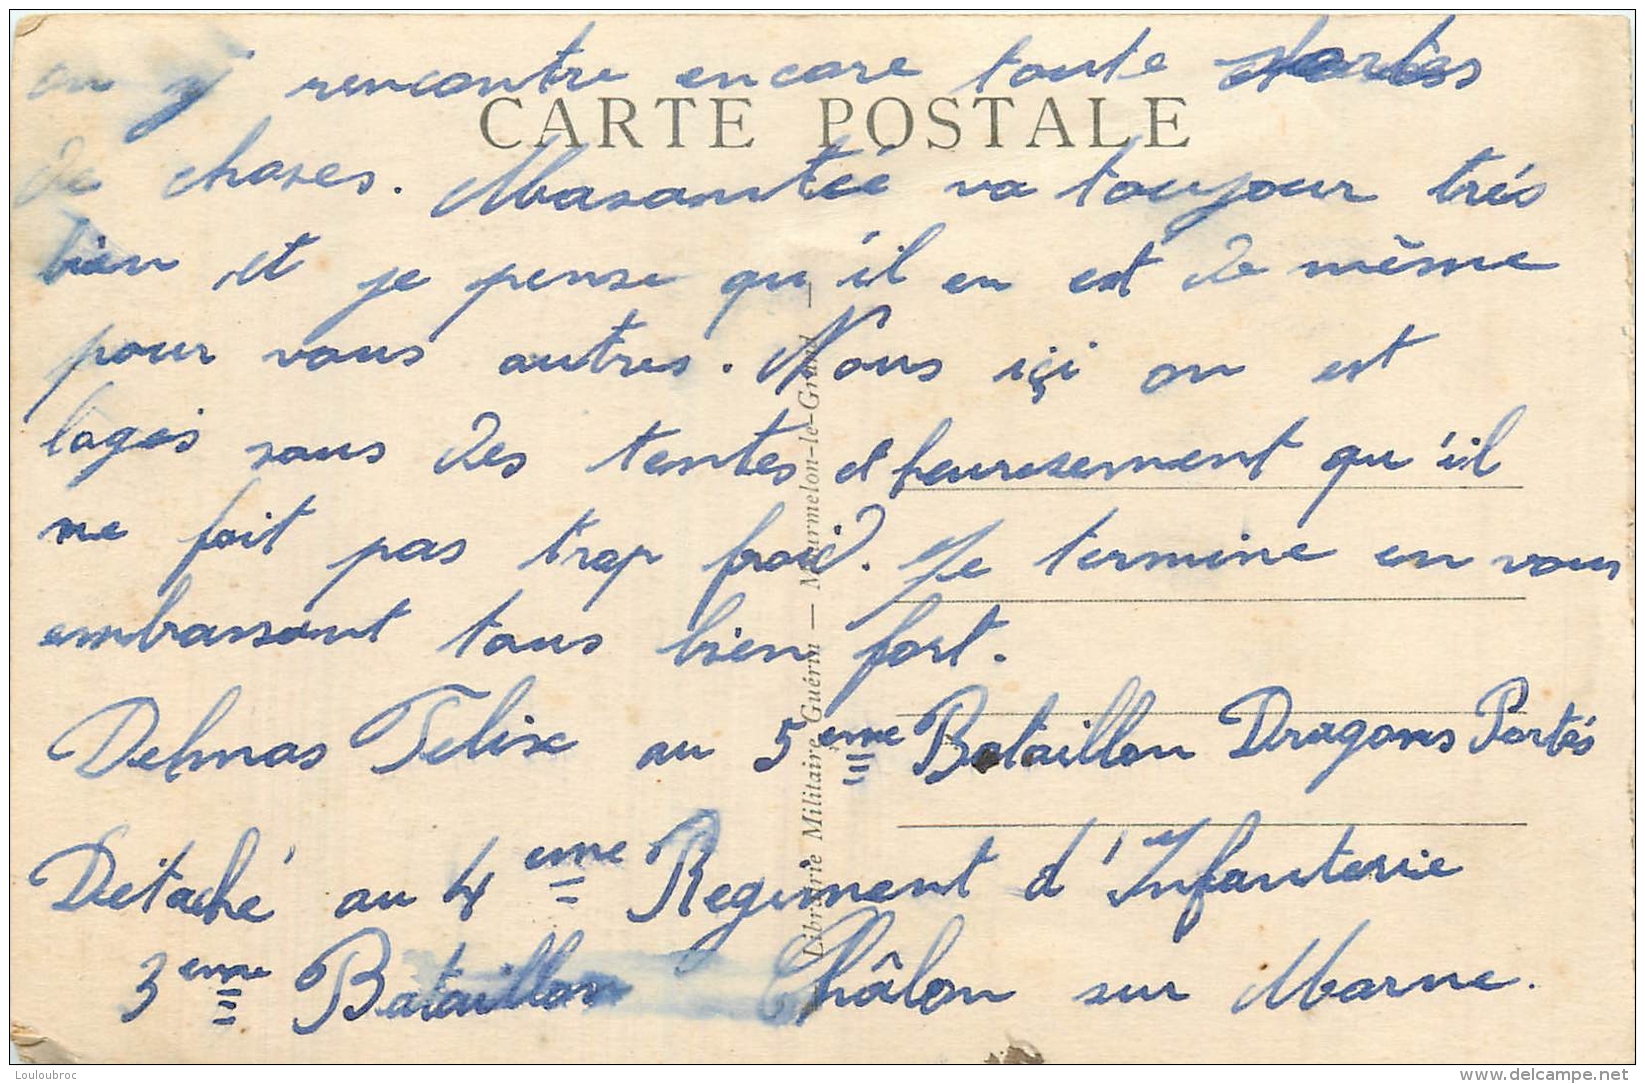 on y rencontre encore toute sortes
CARTE POSTALE
de choses. Ma santée va toujour trés
bien et je pense qu'il en est de même
pour vous autres. Nous içi on est
logés sous des tentes et heuresement qu'il
ne fait pas trop froid. Je termine en vous
embrassant tous bien fort.
Delmas Felix au 5eme Bataillon Dragons Portés
Detaché au 4eme Regiment d'Infanterie
3eme Bataillon Châlon sur Marne.
Librairie Militaire Guérin — Mourmelon-le-Grand —
Louloubroc
delcampe.net